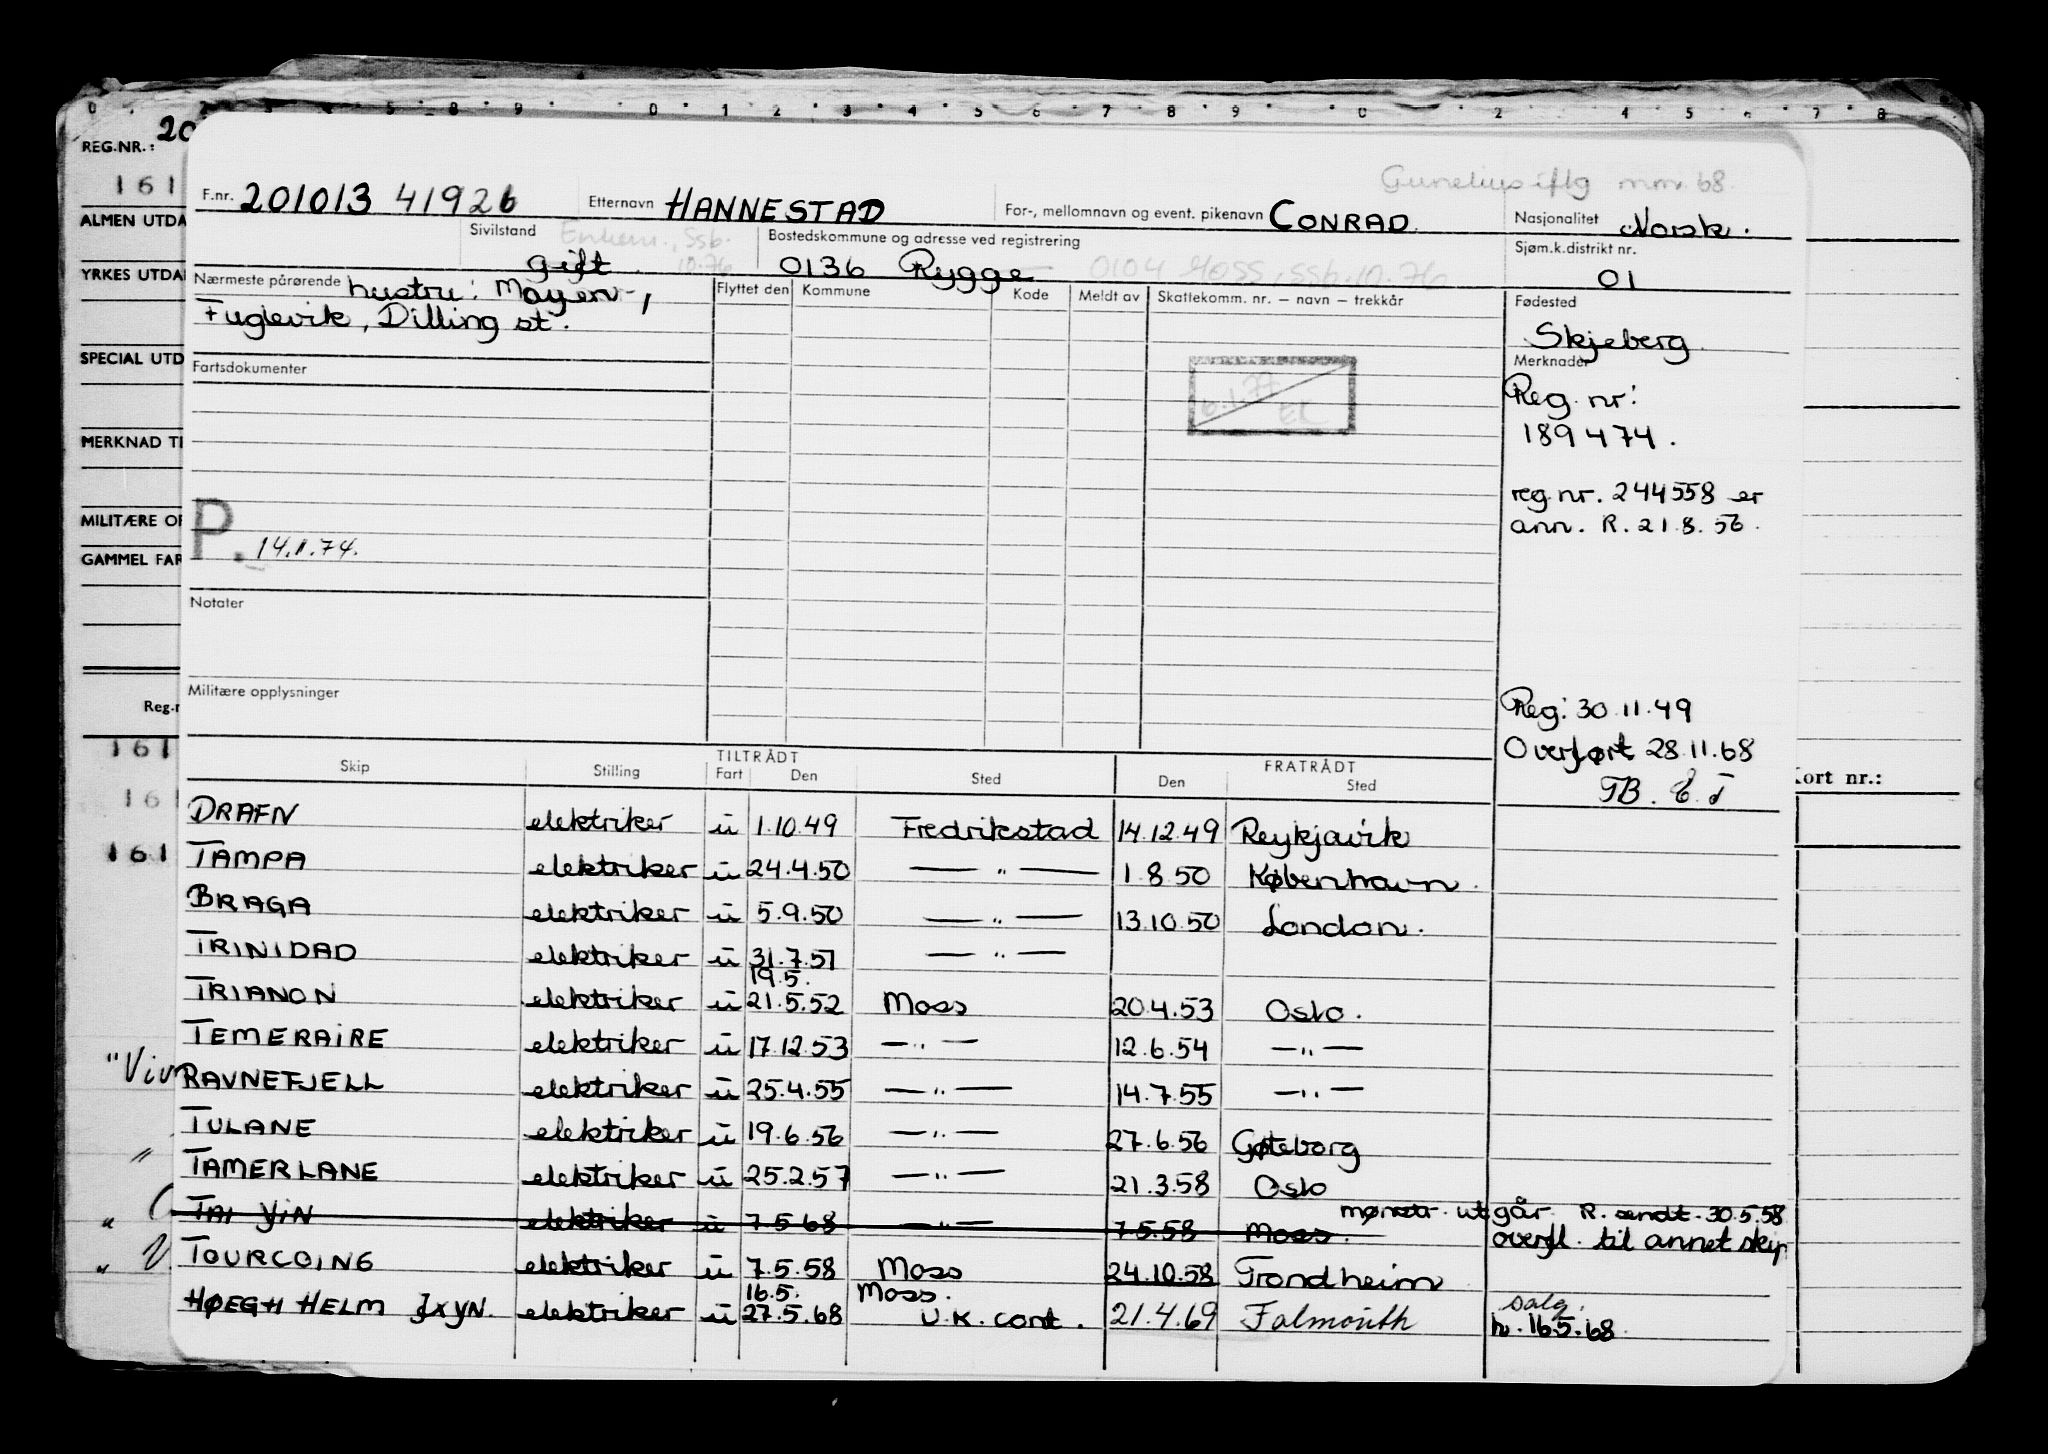 0 2 3 5 8 9 0 1 2 3 4 5 6 7 8 9 0 2 4 5 6 7 8
REG.NR.: 20
161
ALMEN UTDA
YRKES UTDA
SPECIAL UTD
MERKNAD TI
MILITÆRE OP
GAMMEL FAR
Reg.n
161
161
161
"Viv
"
"
" V
Kort nr.:
Guneliusiflg mm. 68.
F.nr. 201013 41926 Etternavn HANNESTAD For-, mellomnavn og event. pikenavn CONRAD. Nasjonalitet Norsk.
Sivilstand Enkem., Ssb. 10.76 Bostedskommune og adresse ved registrering Sjøm.k.distrikt nr.
gift. 0136 Rygge 0104 Moss, Ssb. 10.76 01
Nærmeste pårørende hustru: Mayen -, Flyttet den Kommune Kode Meldt av Skattekomm. nr. – navn – trekkår Fødested
Fuglevik, Dilling st. Skjeberg
Fartsdokumenter Merknader
6.1.77 EK
Reg. nr:
189474.
reg. nr. 244558 er
ann. R. 21.8.56.
P. 14.11.74.
Notater
Militære opplysninger
Reg: 30.11.49
Overført 28.11.68
TB. E.T
Skip Stilling TILTRÅDT Fart Den Sted FRATRÅDT Den Sted
DRAFN elektriker u 1.10.49 Fredrikstad 14.12.49 Reykjavik
TAMPA elektriker u 24.4.50 — " — 1.8.50 København.
BRAGA elektriker u 5.9.50 — " — 13.10.50 London.
TRINIDAD elektriker u 31.7.51 — " —
19.5.
TRIANON elektriker u 21.5.52 Moss 20.4.53 Oslo.
TEMERAIRE elektriker u 17.12.53 — " — 12.6.54 — " —
RAVNEFJELL elektriker u 25.4.55 — " — 14.7.55 — " —
TULANE elektriker u 19.6.56 — " — 27.6.56 Gøteborg
TAMERLANE elektriker u 25.2.57 — " — 21.3.58 Oslo
mønstr. utgår. R. sendt. 30.5.58
TAI YIN elektriker u 7.5.68 — " — 7.5.58 Moss. overfl. til annet skip
TOURCOING elektriker u 7.5.58 Moss 24.10.58 Trondheim
16.5. Moss. salg.
HØEGH HELM JXYN. elektriker u 27.5.68 U.K. cont. 21.4.69 Falmouth h. 16.5.68.